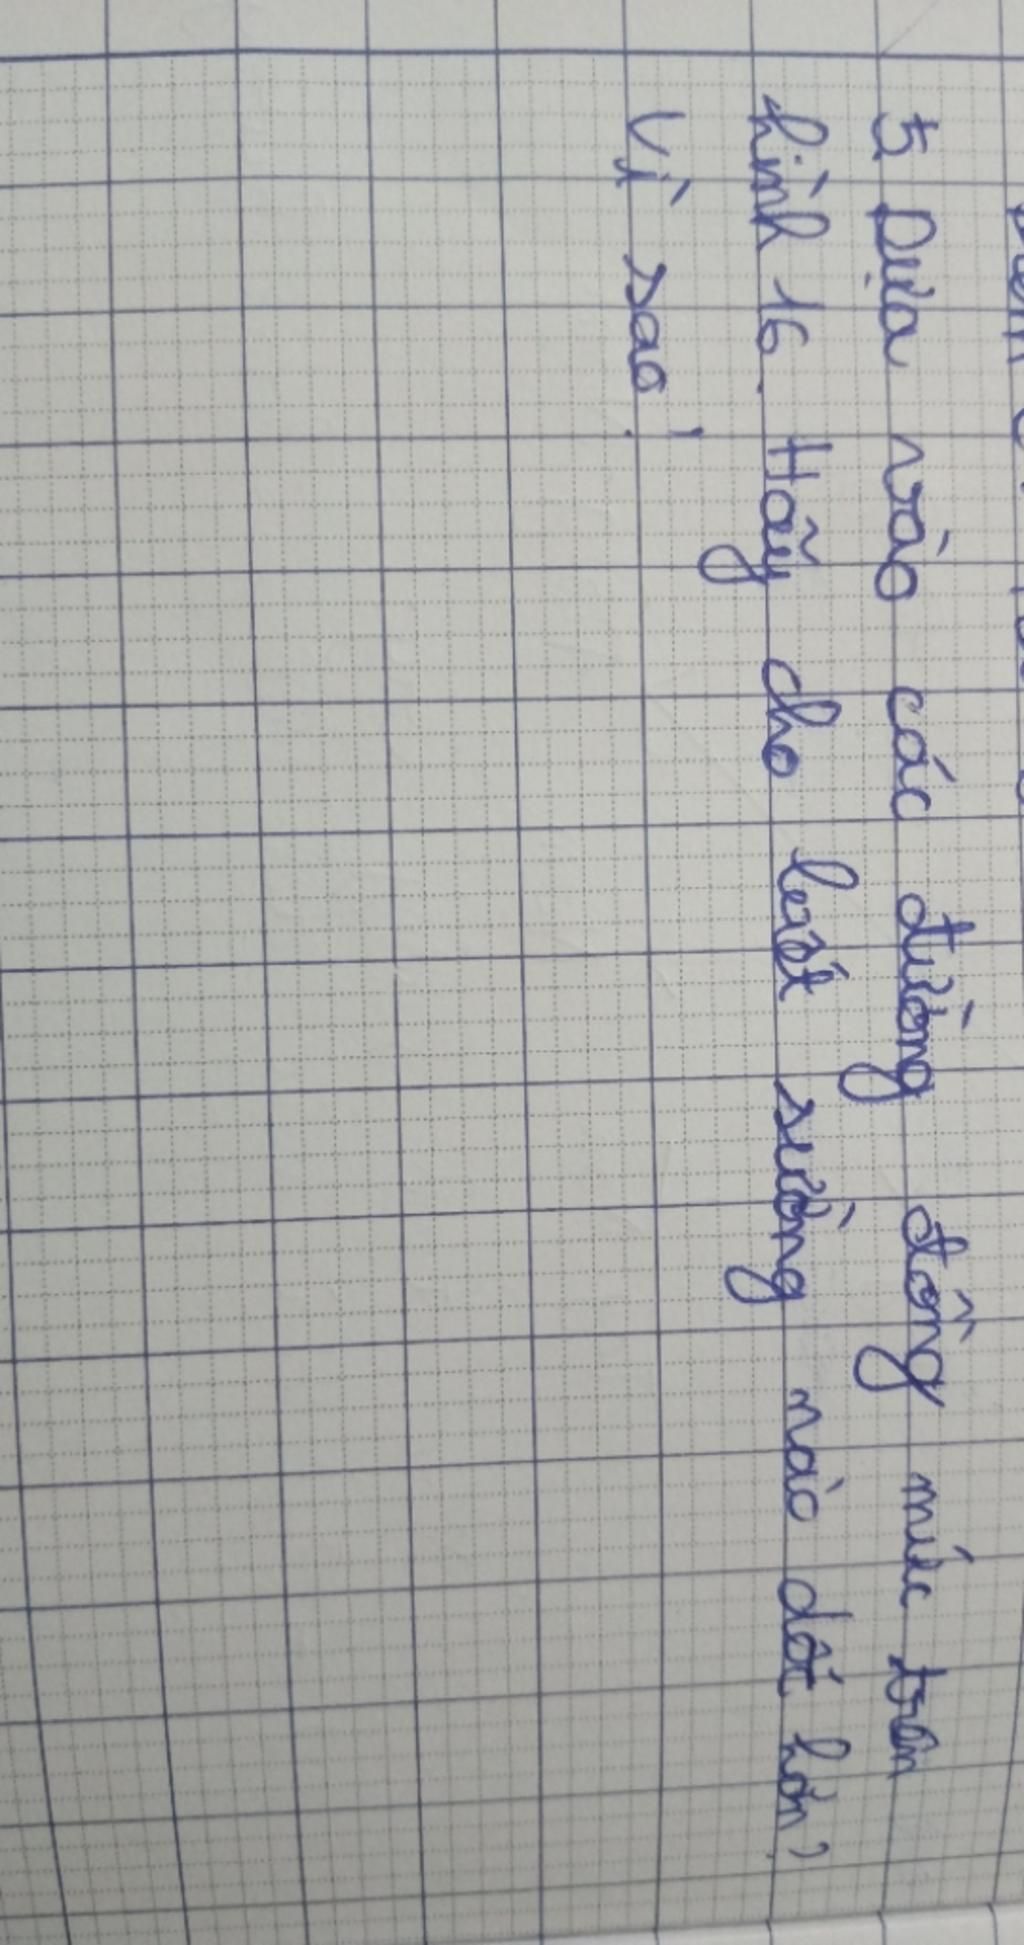 5 Dựa vào các đường đồng mức trên
hình 16. Hãy cho biết sường nào dốt hơn?
Vì sao!